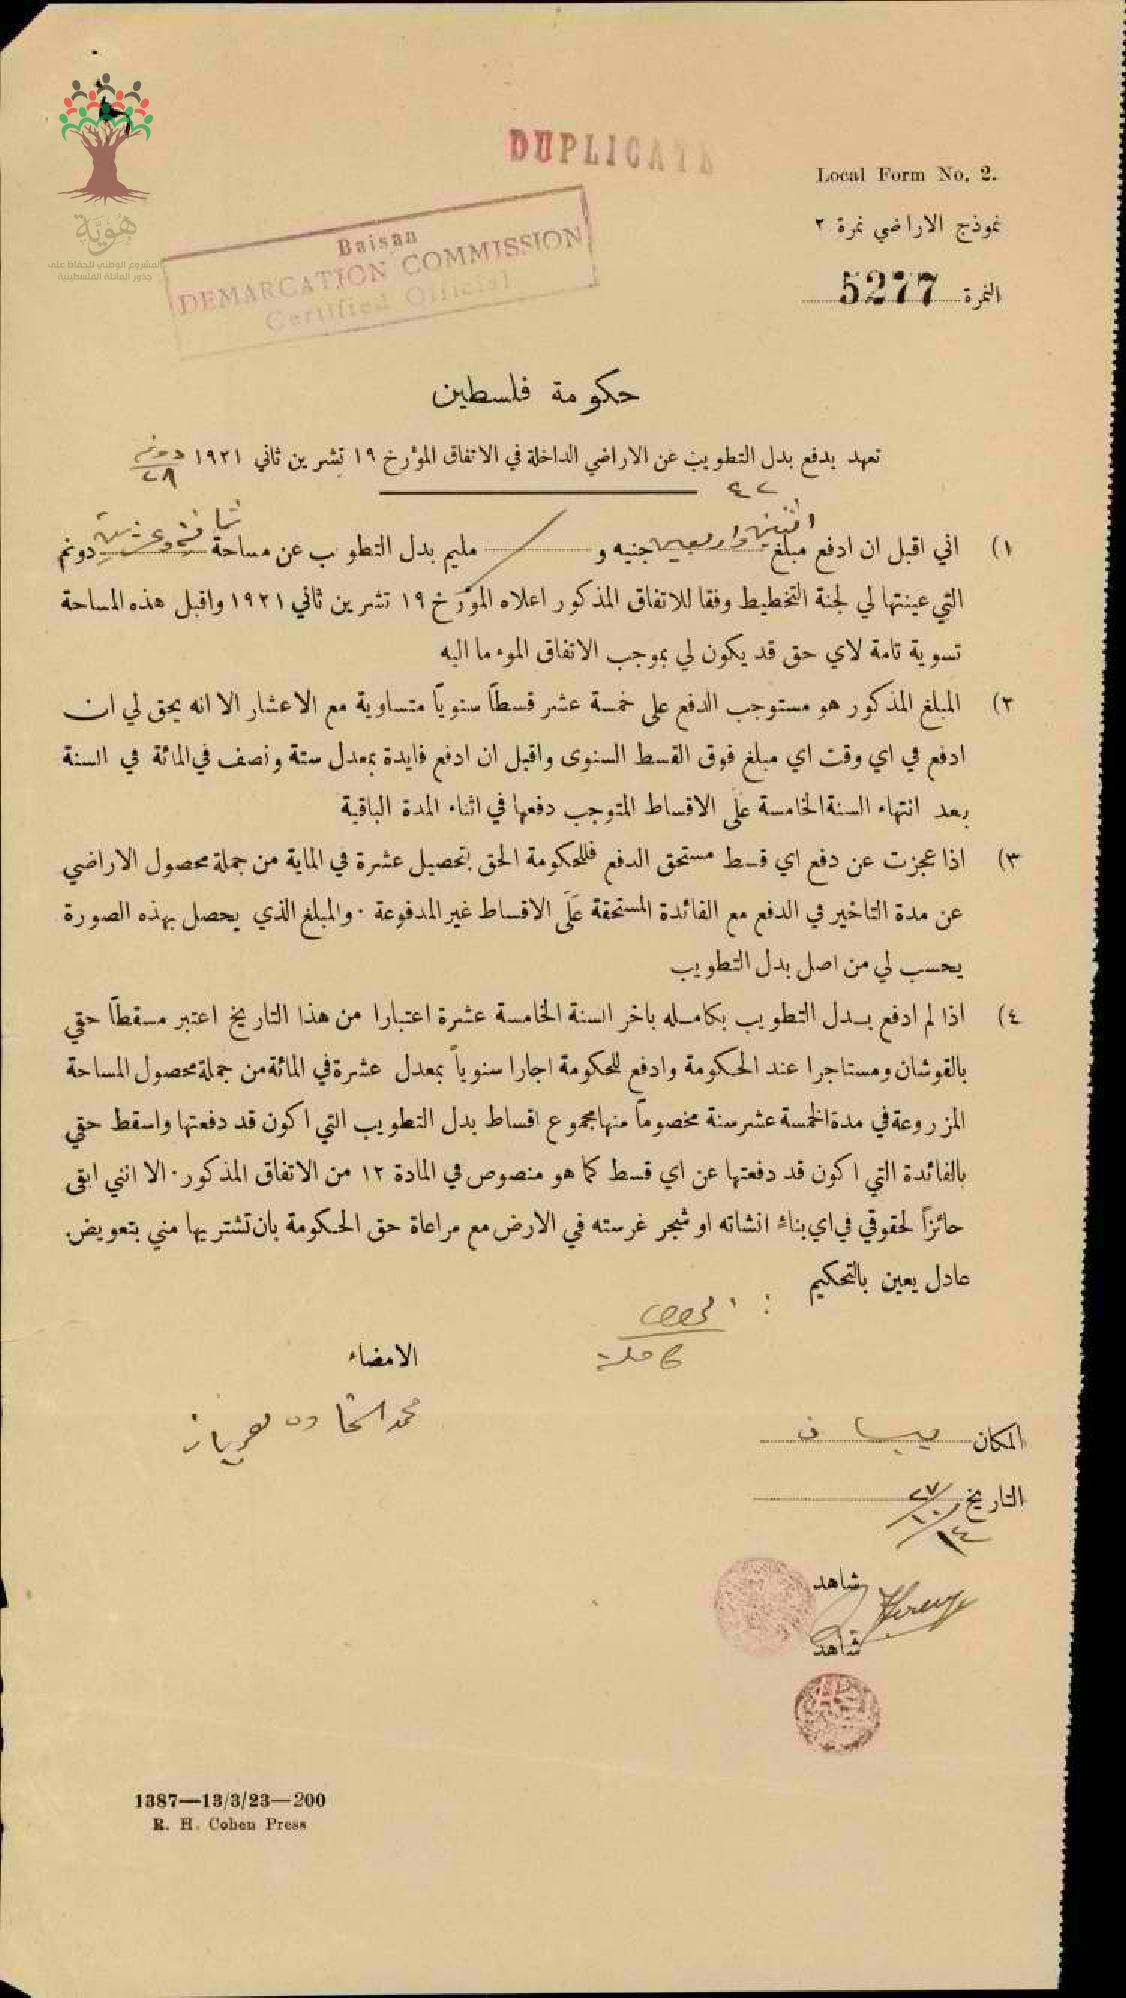 DUPLICATE
Local Form No. 2.
نموذج الاراضي نمرة ٢
النمرة 5277
هوية
المشروع الوطني للحفاظ على
جذور العائلة الفلسطينية
Baisan
DEMARCATION COMMISSION
Certified Official
حكومة فلسطين
تعهد بدفع بدل التطويب عن الاراضي الداخلة في الاتفاق المؤرخ ١٩ تشرين ثاني ١٩٢١ دونم
٢٨
٤٢
١) اني اقبل ان ادفع مبلغ اثنين واربعين جنيه و مليم بدل التطويب عن مساحة ثمانية وعشرين دونم
التي عينتها لي لجنة التخطيط وفقا للاتفاق المذكور اعلاه المؤرخ ١٩ تشرين ثاني ١٩٢١ واقبل هذه المساحة
تسوية تامة لاي حق قد يكون لي بموجب الاتفاق الموء ما اليه
٢) المبلغ المذكور هو مستوجب الدفع على خمسة عشر قسطاً سنوياً متساوية مع الاعشار الا انه يحق لي ان
ادفع في اي وقت اي مبلغ فوق القسط السنوى واقبل ان ادفع فايدة بمعدل ستة ونصف في المائة في السنة
بعد انتهاء السنة الخامسة عَلَى الاقساط المتوجب دفعها في اثناء المدة الباقية
٣) اذا عجزت عن دفع اي قسط مستحق الدفع فللحكومة الحق بتحصيل عشرة في الماية من جملة محصول الاراضي
عن مدة التاخير في الدفع مع الفائدة المستحقة عَلَى الاقساط غير المدفوعة · والمبلغ الذي يحصل بهذه الصورة
يحسب لي من اصل بدل التطويب
٤) اذا لم ادفع بدل التطويب بكامله باخر السنة الخامسة عشرة اعتبارا من هذا التاريخ اعتبر مسقطاً حقي
بالقوشان ومستاجرا عند الحكومة وادفع للحكومة اجارا سنوياً بمعدل عشرة في المائة من جملة محصول المساحة
المزروعة في مدة الخمسة عشر سنة مخصوماً منها مجموع اقساط بدل التطويب التي اكون قد دفعتها واسقط حقي
بالفائدة التي اكون قد دفعتها عن اي قسط كما هو منصوص في المادة ١٢ من الاتفاق المذكور · الا انني ابقى
حائزاً لحقوقي في اي بناء انشاته او شجر غرسته في الارض مع مراعاة حق الحكومة بان تشتريها مني بتعويض
عادل يعين بالتحكيم
كاملة
الامضاء
محمد
المكان بيسان
التاريخ ٢٧/١٠/
شاهد
شاهد
1387—13/3/23—200
R. H. Cohen Press